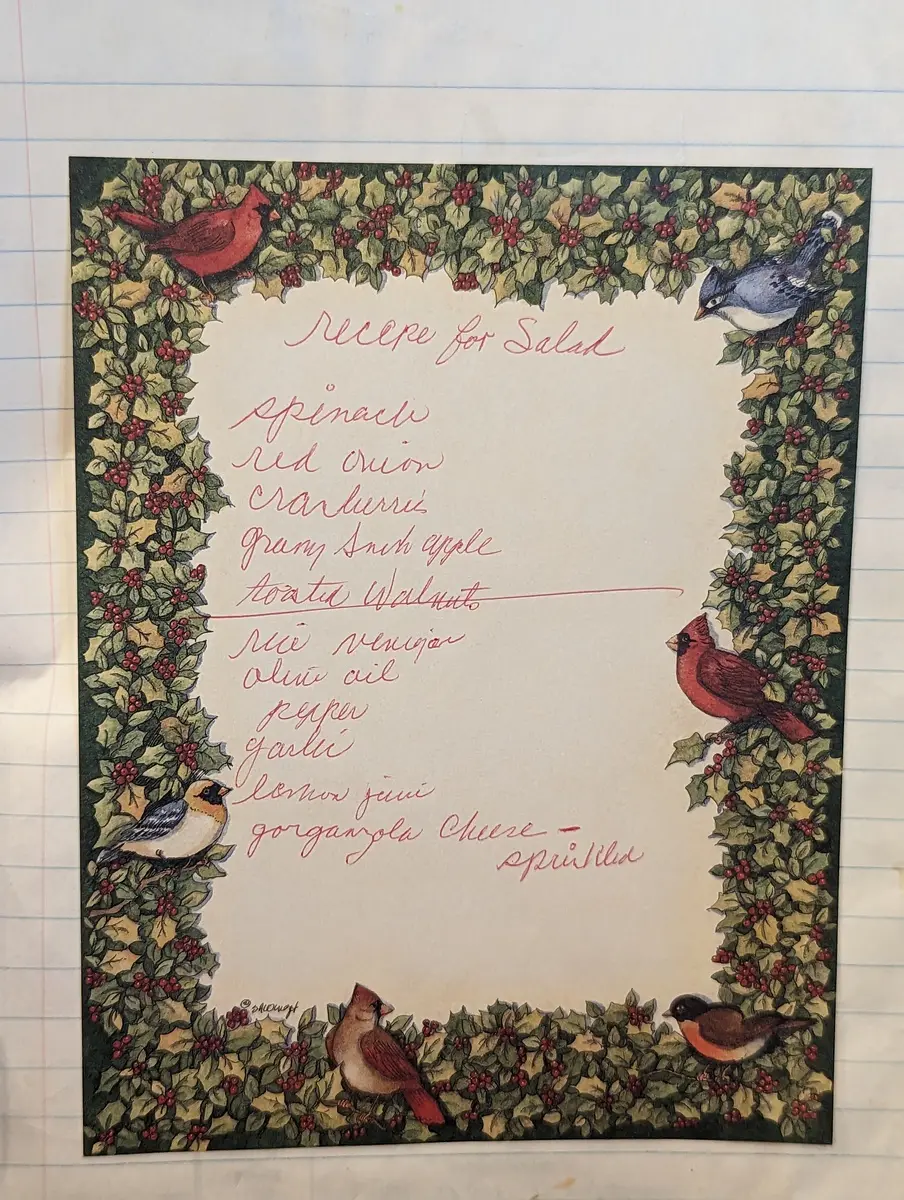 recepe for Salad
spinach
red onion
cranberries
granny Smith apple
toasted Walnuts
rice venigar
olive oil
pepper
garlic
lemon juice
gorganzola Cheese -
sprinkled